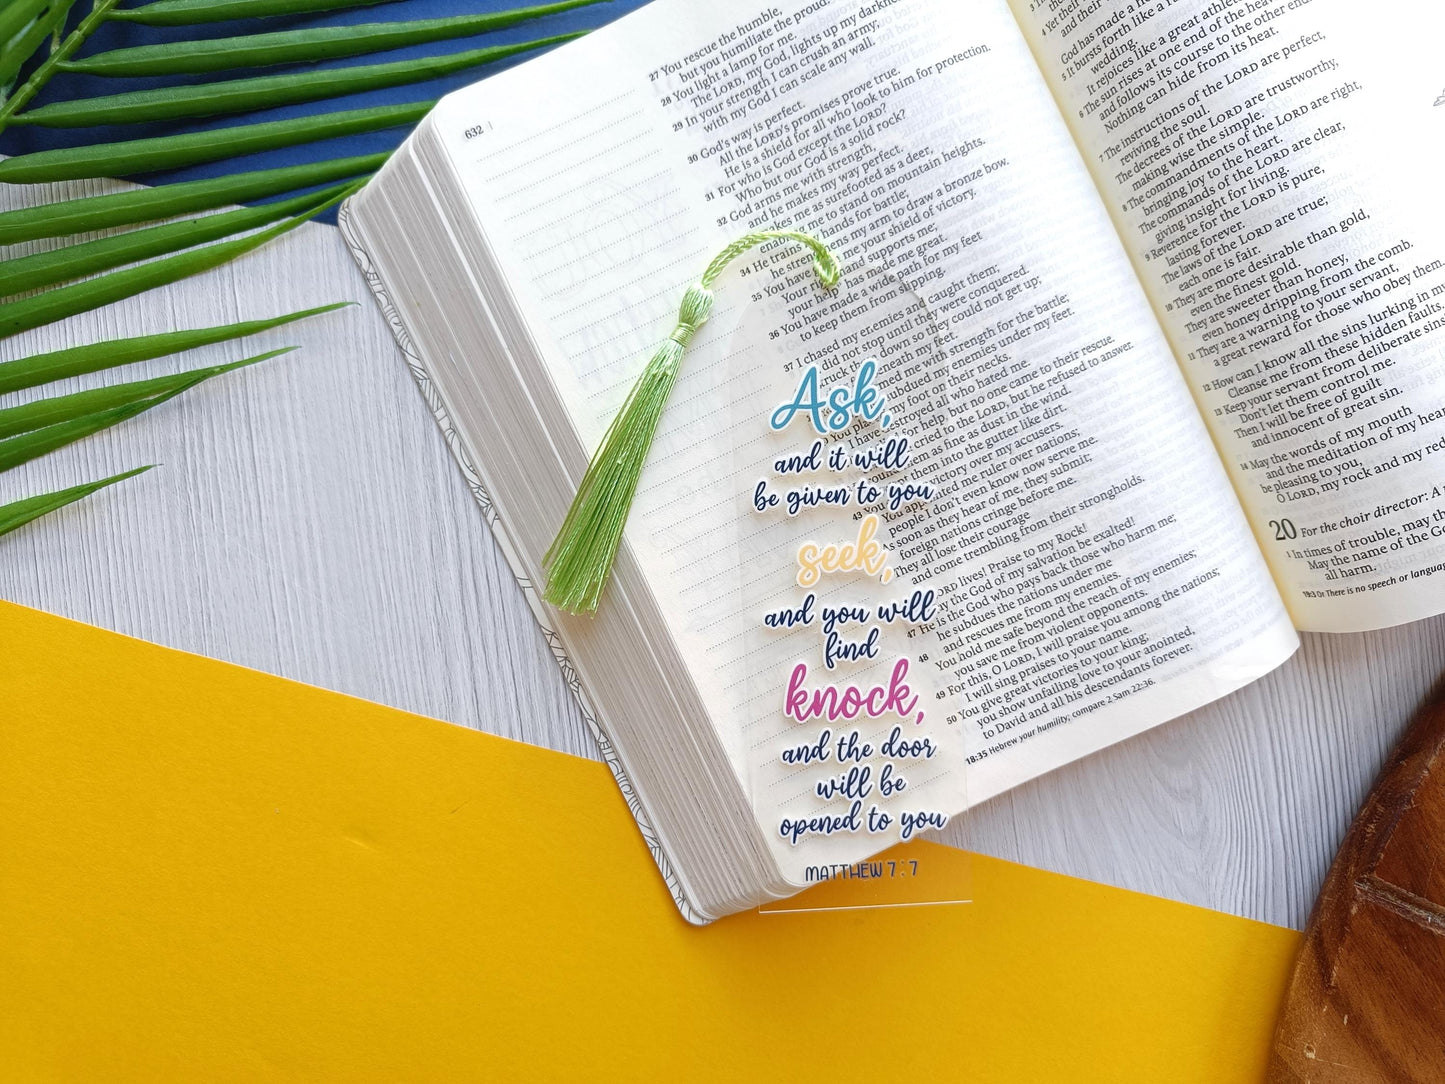 632
27 You rescue the humble,
but you humiliate the proud.
28 You light a lamp for me.
The LORD, my God, lights up my darkness.
29 In your strength I can crush an army;
with my God I can scale any wall.
30 God's way is perfect.
All the LORD's promises prove true.
He is a shield for all who look to him for protection.
31 For who is God except the LORD?
Who but our God is a solid rock?
32 God arms me with strength,
and he makes my way perfect.
makes me as surefooted as a deer,
enabling me to stand on mountain heights.
34 He trains my hands for battle;
he strengthens my arm to draw a bronze bow.
35 You have given me your shield of victory.
Your right hand supports me;
your help has made me great.
36 You have made a wide path for my feet
to keep them from slipping.
37 I chased my enemies and caught them;
did not stop until they were conquered.
struck them down so they could not get up;
beneath my feet.
armed me with strength for the battle;
subdued my enemies under my feet.
You placed my foot on their necks.
I have destroyed all who hated me.
for help, but no one came to their rescue.
cried to the LORD, but he refused to answer.
them as fine as dust in the wind.
them into the gutter like dirt.
43 You victory over my accusers.
You appointed me ruler over nations;
people I don't even know now serve me.
As soon as they hear of me, they submit;
foreign nations cringe before me.
They all lose their courage
and come trembling from their strongholds.
LORD lives! Praise to my Rock!
May the God of my salvation be exalted!
47 He is the God who pays back those who harm me;
he subdues the nations under me
48 and rescues me from my enemies.
You hold me safe beyond the reach of my enemies;
you save me from violent opponents.
49 For this, O LORD, I will praise you among the nations;
I will sing praises to your name.
50 You give great victories to your king;
you show unfailing love to your anointed,
to David and all his descendants forever.
18:35 Hebrew your humility; compare 2 Sam 22:36.
Ask,
and it will
be given to you
seek,
and you will
find
knock,
and the door
will be
opened to you
MATTHEW 7:7
God has made a home in the heavens
5 It bursts forth like a
wedding.
It rejoices like a great athlete
6 The sun rises at one end of the heavens
and follows its course to the other end.
Nothing can hide from its heat.
7 The instructions of the LORD are perfect,
reviving the soul.
The decrees of the LORD are trustworthy,
making wise the simple.
8 The commandments of the LORD are right,
bringing joy to the heart.
The commands of the LORD are clear,
giving insight for living.
9 Reverence for the LORD is pure,
lasting forever.
The laws of the LORD are true;
each one is fair.
10 They are more desirable than gold,
even the finest gold.
They are sweeter than honey,
even honey dripping from the comb.
11 They are a warning to your servant,
a great reward for those who obey them.
12 How can I know all the sins lurking in my
Cleanse me from these hidden faults.
13 Keep your servant from deliberate sins
Don't let them control me.
Then I will be free of guilt
and innocent of great sin.
14 May the words of my mouth
and the meditation of my heart
be pleasing to you,
O LORD, my rock and my
20 For the choir director: A
1 In times of trouble, may the
May the name of the
all harm.
19:3 Or There is no speech or language